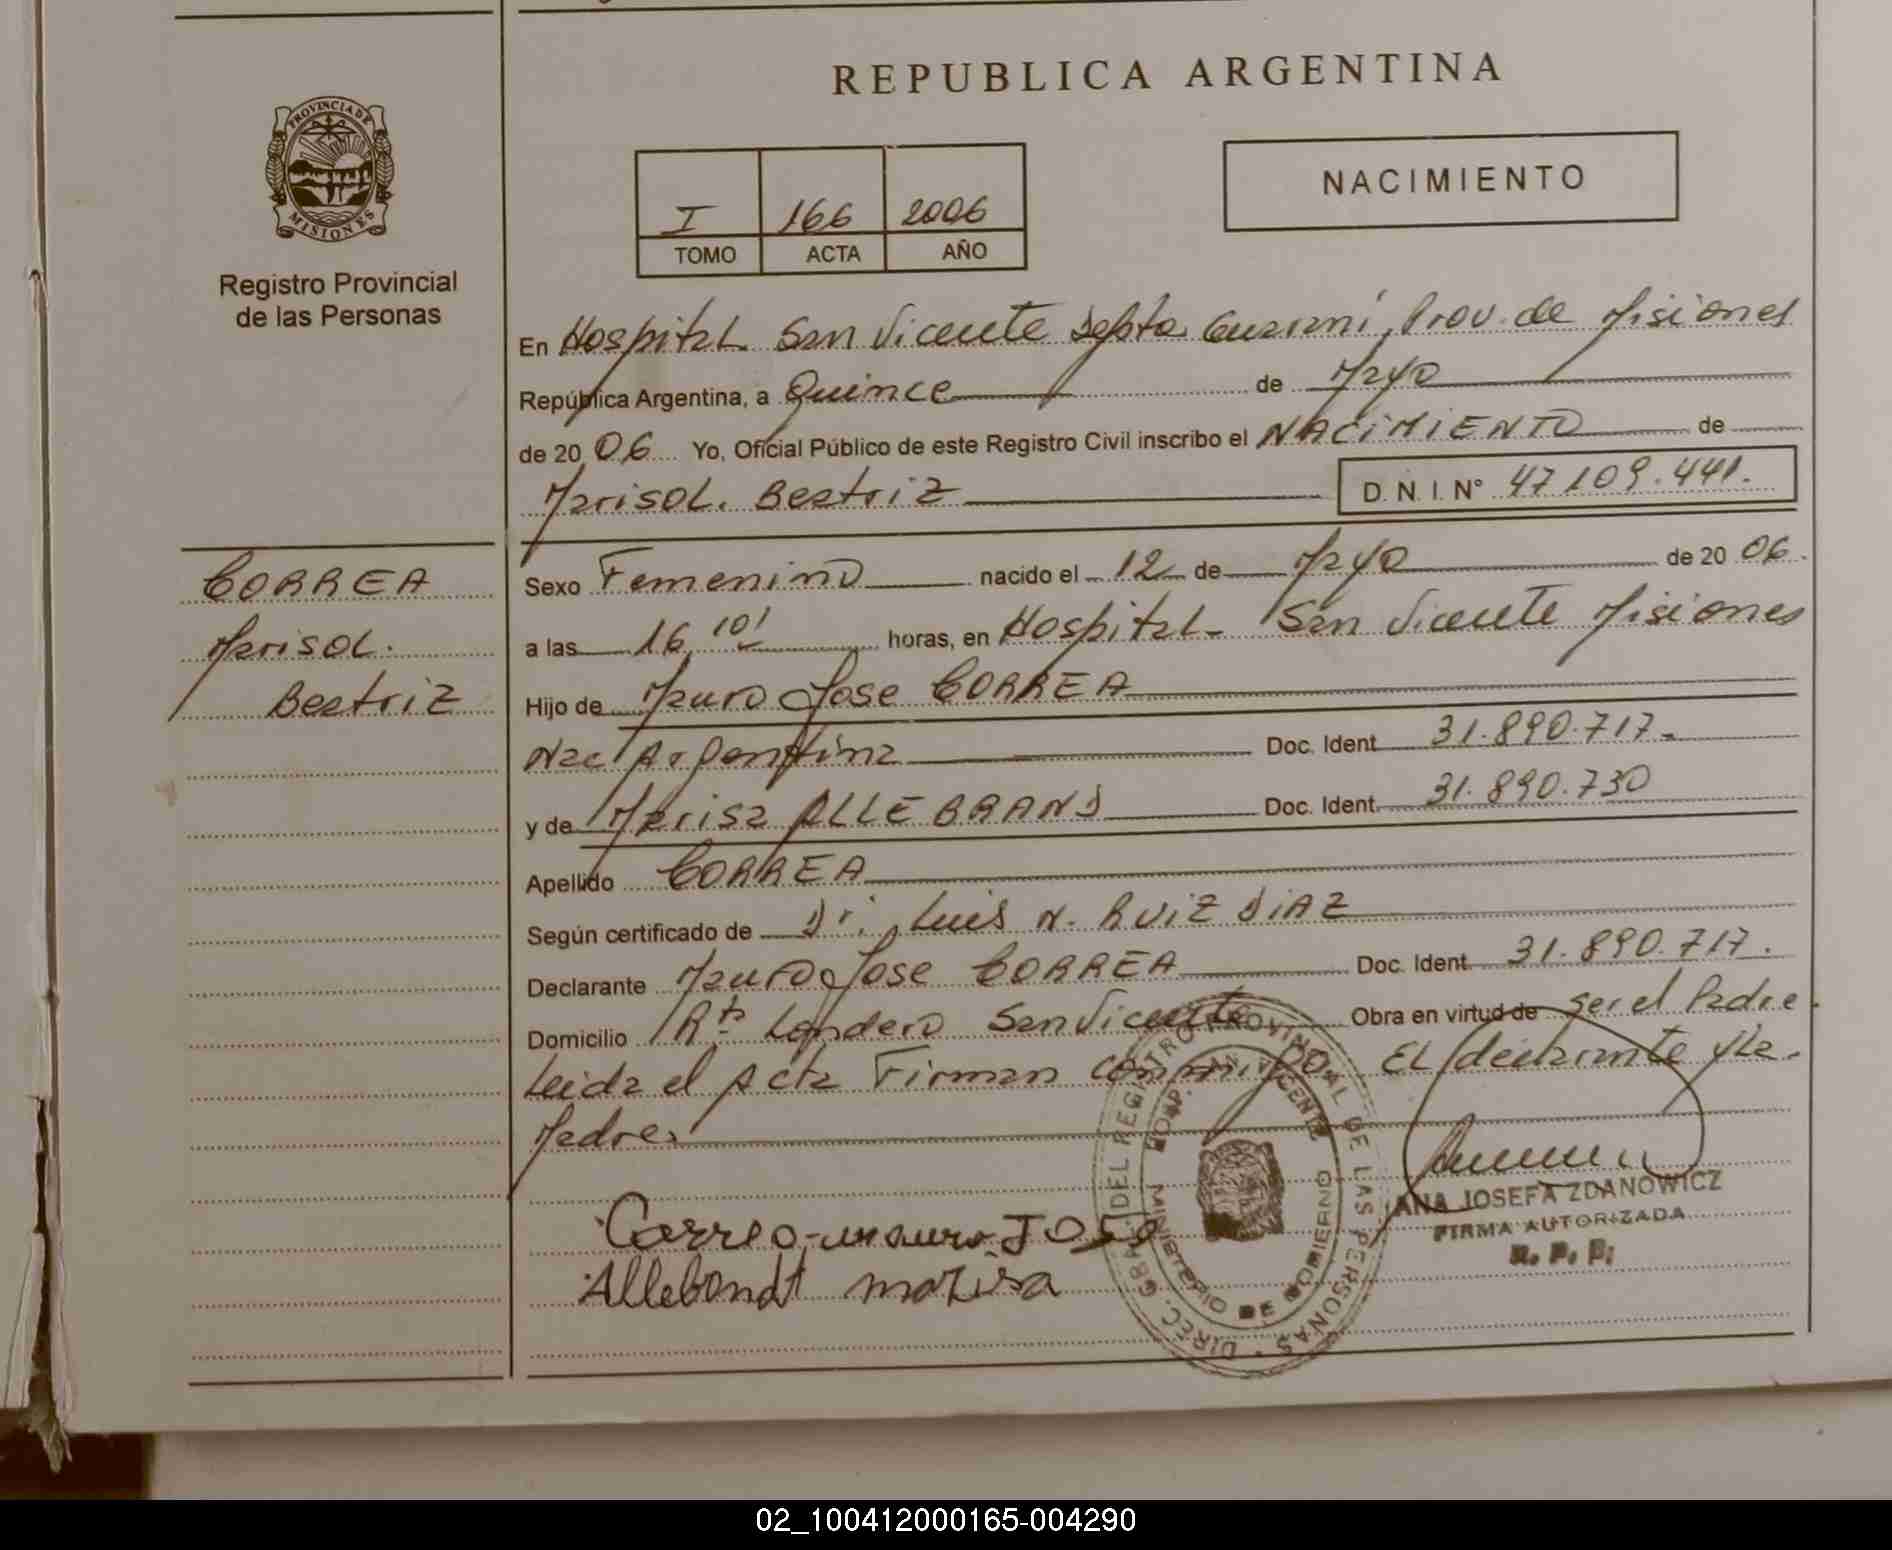 REPUBLICA ARGENTINA
PROVINCIA DE
MISIONES
Registro Provincial
de las Personas
NACIMIENTO
I 166 2006
TOMO ACTA AÑO
En Hospital San Vicente Depto. Guaraní, Prov. de Misiones
República Argentina, a Quince de Mayo
de 2006 Yo, Oficial Público de este Registro Civil inscribo el NACIMIENTO de
Marisol. Beatriz D. N. I. N° 47109.441.
CORREA
Marisol.
Beatriz
Sexo Femenino nacido el 12 de Mayo de 2006.
a las 16,10' horas, en Hospital San Vicente Misiones
Hijo de Mauro Jose CORREA
Nac Argentina Doc. Ident 31.890.717.
y de Marisa ALLEBRAND Doc. Ident. 31.890.730
Apellido CORREA
Según certificado de Dr. Luis N. RUIZ DIAZ
Declarante Mauro Jose CORREA Doc. Ident 31.890.717.
Domicilio Londero San Vicente Obra en virtud de ser el Padre.
Leida el Acta Firman conmigo. EL declarante y La.
Madre.
Correa mauro JOSe
Allebondt marisa
DIREC. GRAL. DEL REGISTRO PROVINCIAL DE LAS PERSONAS
HOSP. SAN VICENTE
MINISTERIO DE GOBIERNO
ANA JOSEFA ZDANOWICZ
FIRMA AUTORIZADA
R. P. P.
02_100412000165-004290